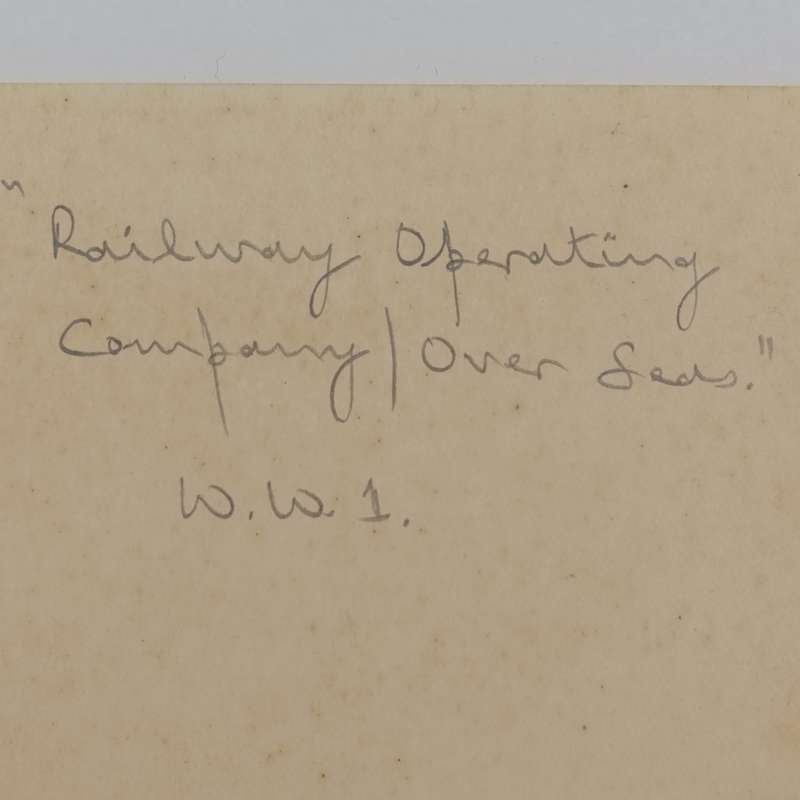 "Railway Operating
Company/Over Seas."
W.W.1.